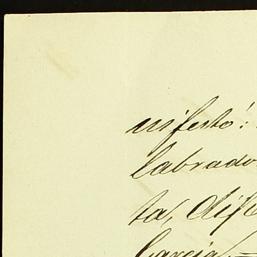 nifestó:
labrado
ta, dife
Garcia.=